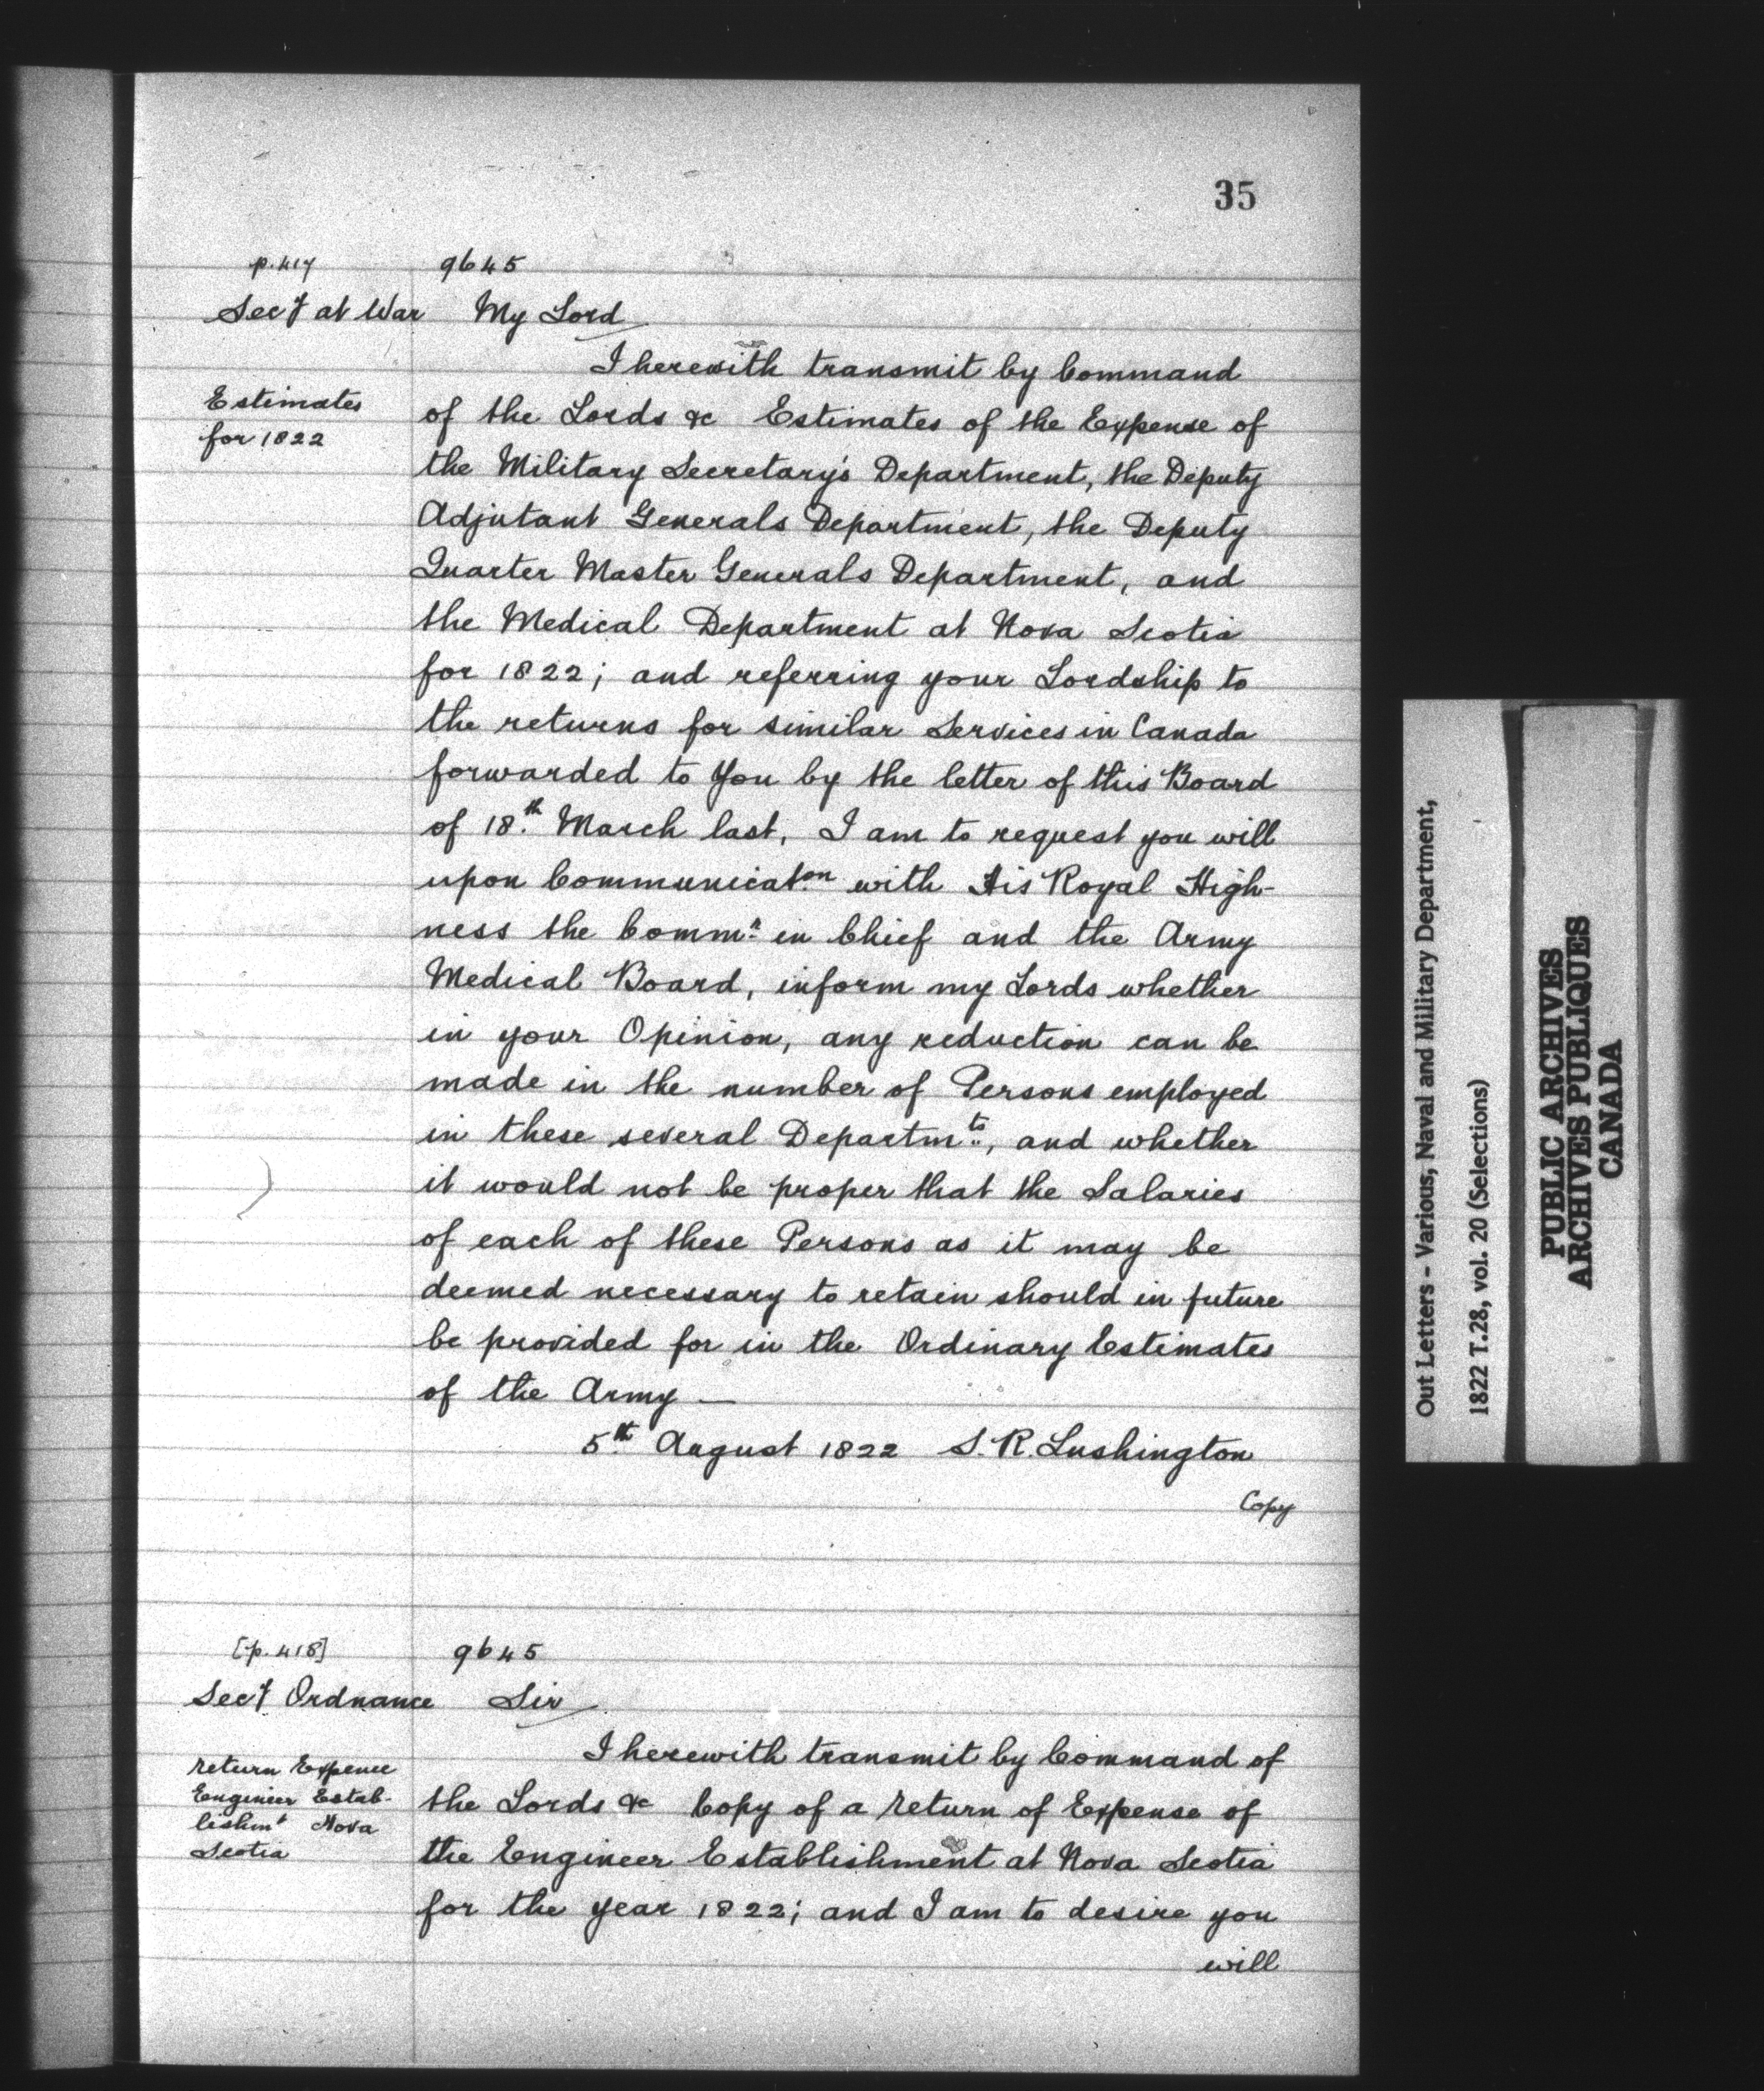 35
p. 417 9645
Secy at War My Lord
I herewith transmit by Command
Estimates
for 1822
of the Lords &c Estimates of the Expense of
the Military Secretary's Department, the Deputy
Adjutant Generals Department, the Deputy
Quarter Master Generals Department, and
the Medical Department at Nova Scotia
for 1822; and referring your Lordship to
the returns for similar Services in Canada
forwarded to You by the letter of this Board
of 18th March last, I am to request you will
upon Communicaton with His Royal High-
ness the Commr in Chief and the Army
Medical Board, inform my Lords whether
in your Opinion, any reduction can be
made in the number of Persons employed
in these several Departmts, and whether
it would not be proper that the Salaries
of each of these Persons as it may be
deemed necessary to retain should in future
be provided for in the Ordinary Estimates
of the Army —
5th August 1822 S. R. Lushington
Copy
[p. 418] 9645
Secy Ordnance Sir
I herewith transmit by Command of
return Expence
Engineer Estab-
lishmt Nova
Scotia
the Lords &c Copy of a return of Expense of
the Engineer Establishment at Nova Scotia
for the year 1822; and I am to desire you
will
Out Letters - Various, Naval and Military Department,
1822 T.28, vol. 20 (Selections)
PUBLIC ARCHIVES
ARCHIVES PUBLIQUES
CANADA